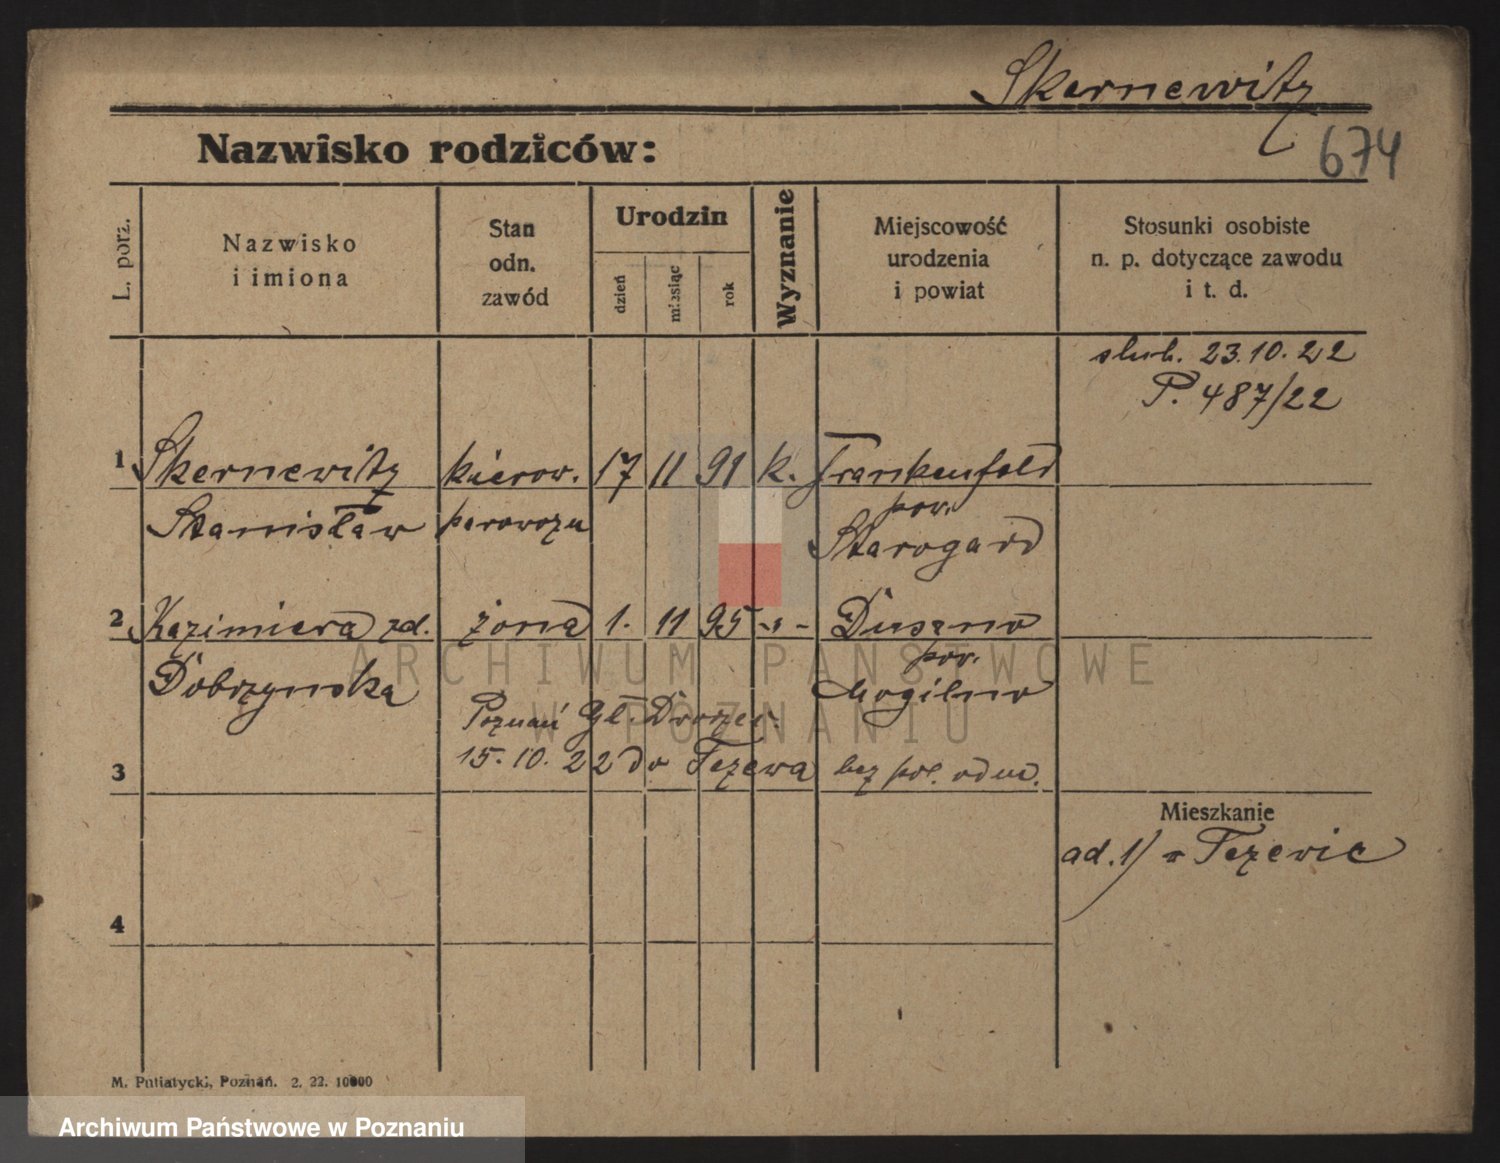 Skernewitz
Nazwisko rodziców:
674
L. porz.
Nazwisko
i imiona
Stan
odn.
zawód
Urodzin
dzień
miesiąc
rok
Wyznanie
Miejscowość
urodzenia
i powiat
Stosunki osobiste
n. p. dotyczące zawodu
i t. d.
ślub. 23.10.22
P. 487/22
1 Skernewitz kierow. 17 11 91 k. Frankenfeld
Stanisław parowozu pow.
Starogard
2 Kazimiera zd. żona 1. 11 95 -„- Duszno
Dobrzyńska pow.
Mogilno
Poznań Gł. Dworzec.
3 15.10.22 do Tczewa bez pol. odm.
Mieszkanie
ad. 1) w Tczewie
4
M. Putiatycki, Poznań. 2. 22. 10000
ARCHIWUM PAŃSTWOWE
W POZNANIU
Archiwum Państwowe w Poznaniu